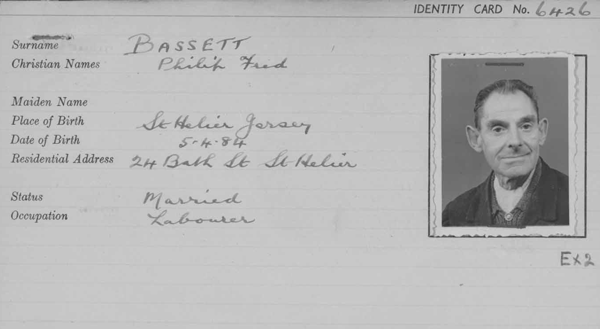 IDENTITY CARD No. 6426
Surname BASSETT
Christian Names Philip Fred
Maiden Name
Place of Birth St Helier Jersey
Date of Birth 5-4-84
Residential Address 24 Bath St St Helier
Status Married
Occupation Labourer
Ex2